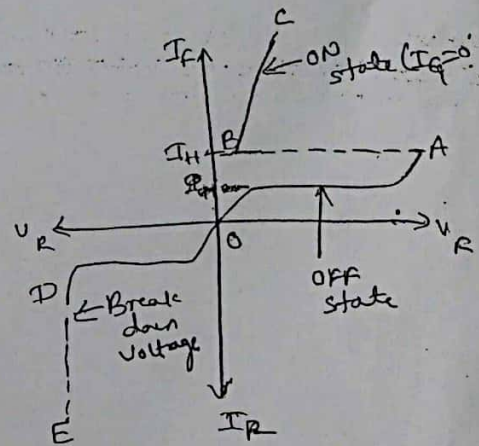 C
I_F
ON
state (I_G=0
B
I_H
A
V_R
O
V_F
D
OFF
state
Break
down
voltage
I_R
E